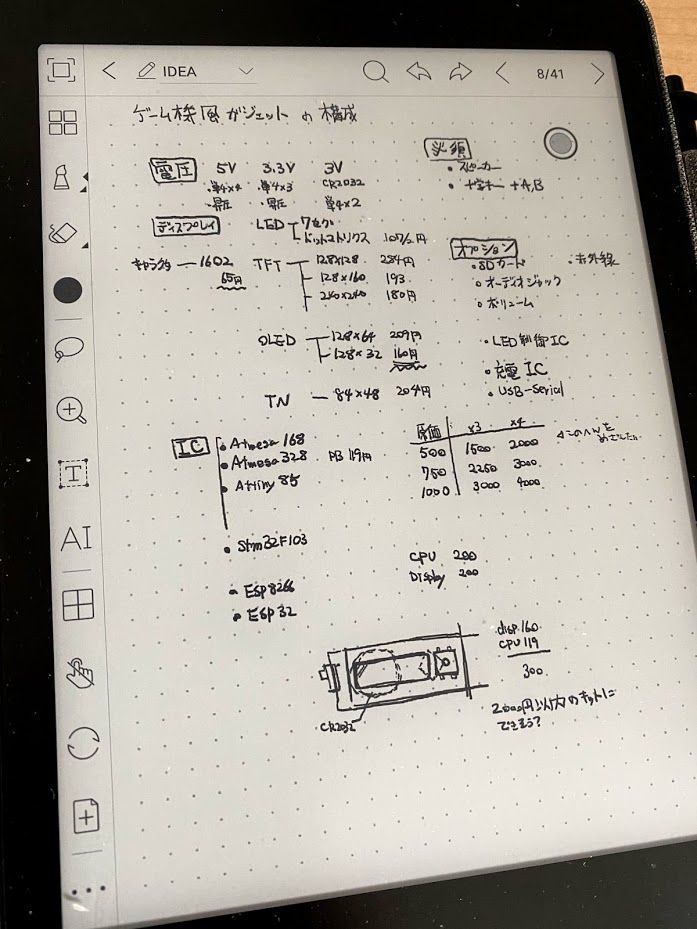 IDEA
8/41
ゲーム機風ガジェットの構成
電圧 5V 3.3V 3V
・単4×4 ・単4×3 CR2032
・昇圧 ・昇圧 単4×2
必須
・スピーカー
・十字キー +A,B
ディスプレイ LED 7セグ
ドットマトリクス
キャラクタ 1602
65円
TFT 128×128 284円
128×160 193
240×240 180円
OLED 128×64 209円
128×32 160円
TN 84×48 204円
オプション
・SDカード ・赤外線
・オーディオジャック
・ボリューム
・LED制御IC
・充電IC
・USB-Serial
IC
・Atmega 168
・Atmega 328 PB 119円
・Attiny 85
・Stm32F103
・Esp8266
・ESP32
原価 ×3 ×4
500 1500 2000
750 2250 3000
1000 3000 4000
このへんをめざしたい
CPU 200
Display 200
CR2032
disp 160
CPU 119
300
2000円以内のキットに
できそう?
T
AI